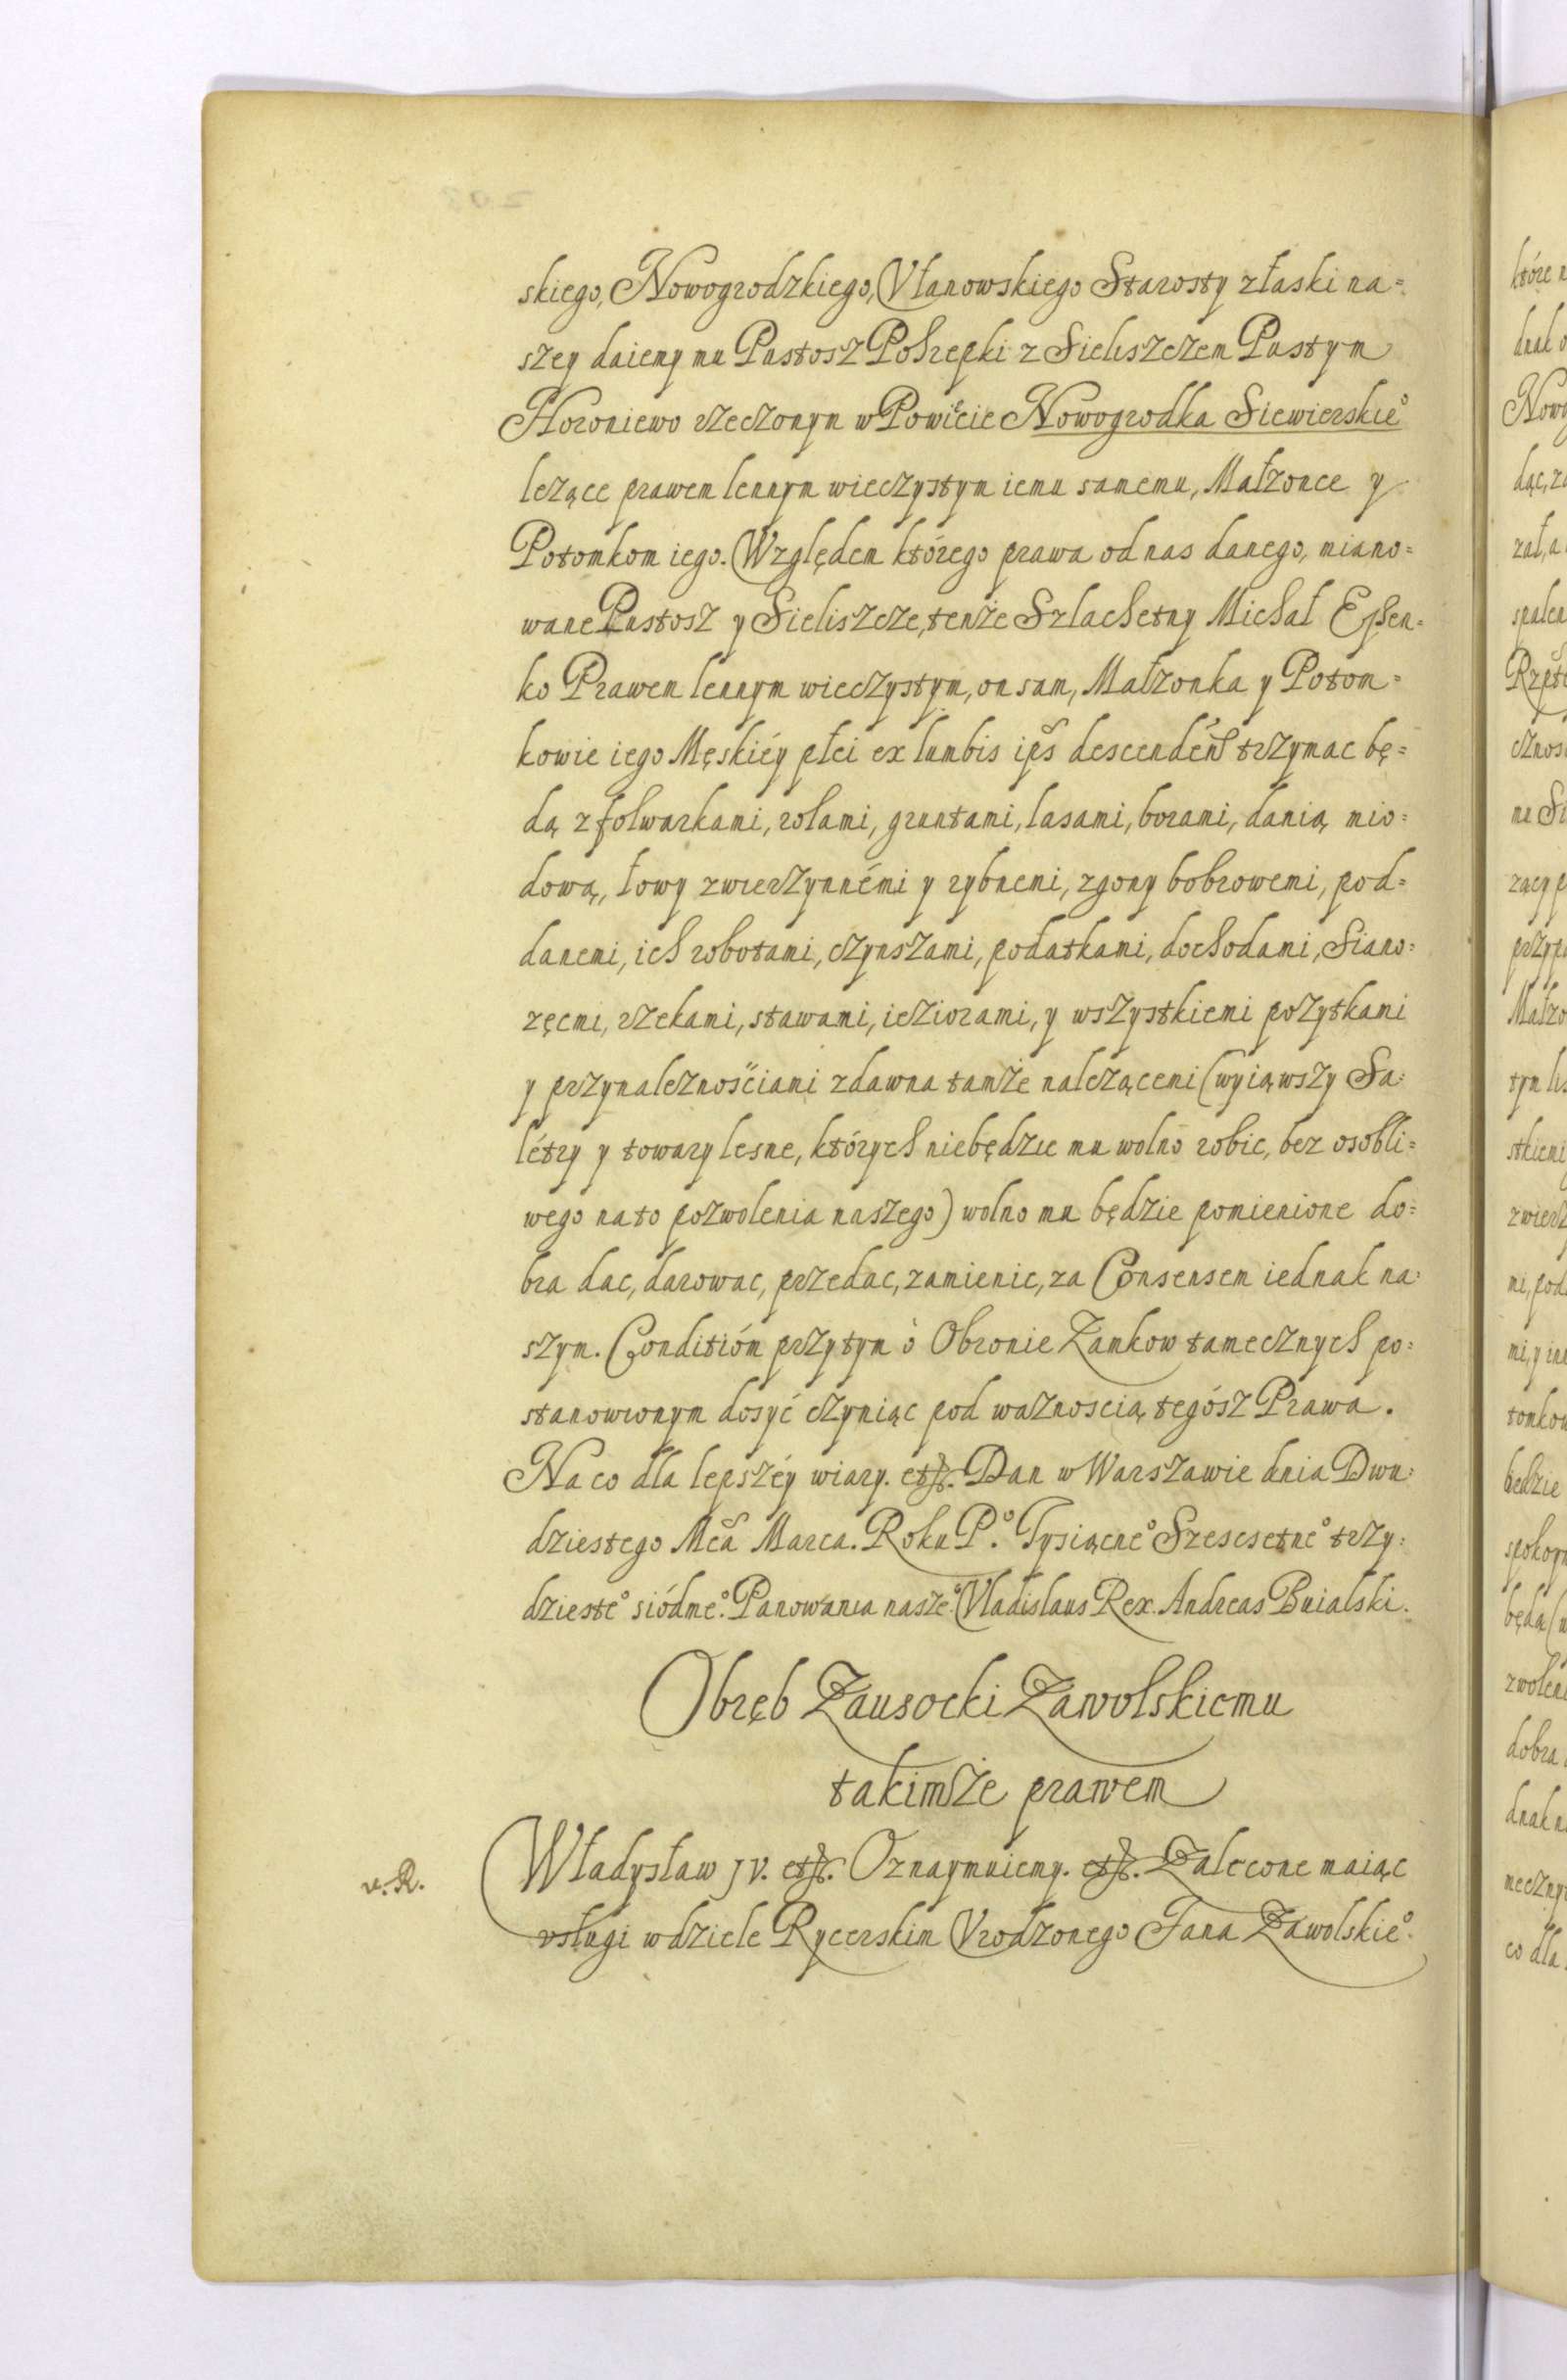 skiego, Nowogrodzkiego, Vłanowskiego Starosty z łaski na=
szey daiemy mu Pustosz Pohrepki z Sieliszczem Pustym
Horoniewo rzeczonym w Powiecie Nowogrodka Siewierskie°
lezące prawem lennym wieczystym iemu samemu, Małzonce y
Potomkom iego. Względem którego prawa od nas danego, miano=
wane Pustosz y Sieliszcze, tenże Szlachetny Michał
ko Prawem lennym wieczystym, on sam, Małzonka y Potom=
kowie iego Męskiéy płci ex lumbis ips descendén trzymac bę=
dą z folwarkami, rolami, gruntami, lasami, borami, danią mio=
dową, łowy zwierzynnémi y rybnemi, zgony bobrowemi, pod=
danemi, ich robotami, czynszami, podatkami, dochodami, Siano=
zęcmi, rzekami, stawami, ieziorami, y wszystkiemi pozytkami
y przynaleznościami zdawna tamże nalezącemi (wyiąwszy Sa=
létry y towary lesne, których niebędzie mu wolno robic, bez osobli=
wego na to pozwolenia naszego) wolno mu będzie pomienione do=
bra dac, darowac, przedac, zamienic, za Consensem iednak na=
szym. Conditióm przytym ò Obronie Zamkow tamecznych po=
stanowionym dosyć czyniąc pod waznoscią tegósz Prawa.
Na co dla lepszéy wiary. etc. Dan w Warszawie dnia Dwu=
dziestego Mca Marca. Roku P.° Tysiącne° Szescsetne° trzy=
dzieste° siódme°. Panowania nasze° Vladislaus Rex. Andreas Buialski.
Obręb Zausocki Zawolskiemu
takimże prawem
v. R.
Władysław JV. etc. Oznaymuiemy. etc. Zalecone maiąc
vsługi w dziele Rycerskim Vrodzonego Jana Zawolskie°